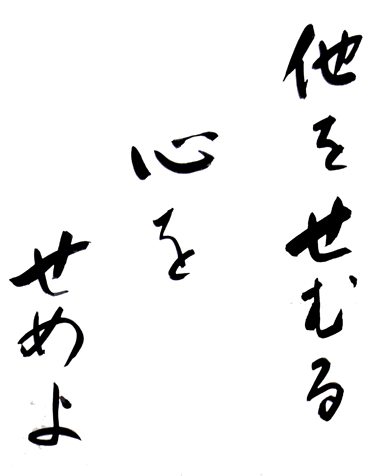 他をせむる
心を
せめよ